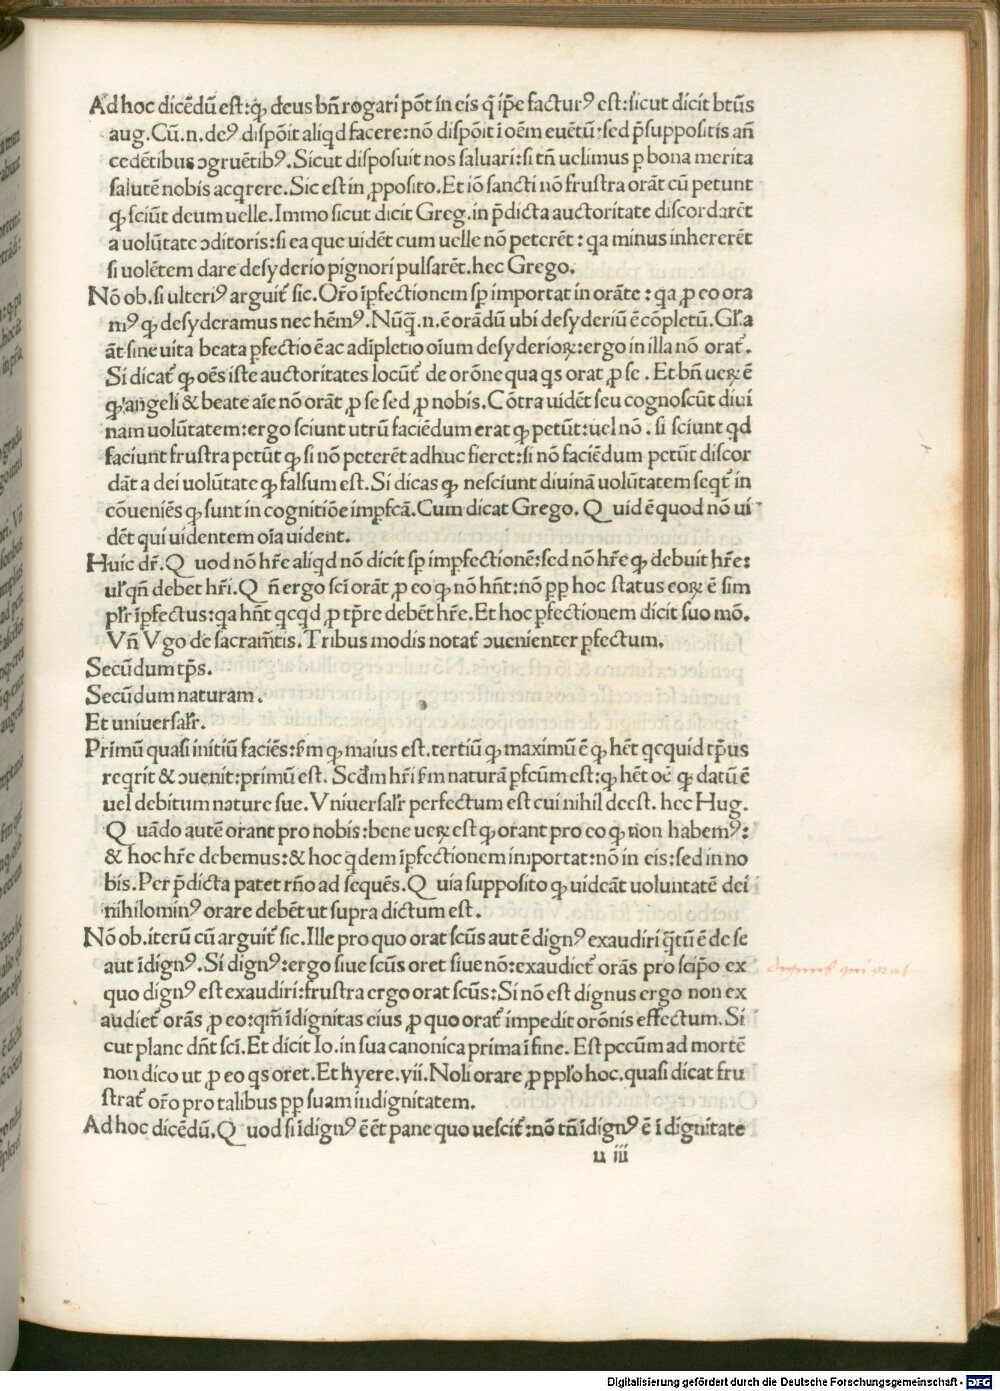 Ad hoc dicēdū est:ꝙ deus bn̄ rogari pōt in eis q̄ ip̄e facturꝰ est:sicut dicit btūs
aug.Cū.n.deꝰ dispōit aliqd facere:nō dispōit ī oēm euētū:sed p̄suppositis an̄
cedētibus ↄgruētibꝰ.Sicut disposuit nos saluari:si tn̄ uelimus ꝑ bona merita
salutē nobis acqrere.Sic est in ꝓposito.Et iō sancti nō frustra orāt cū petunt
ꝙ sciūt deum uelle.Immo sicut dicit Greg.in p̄dicta auctoritate discordarēt
a uolūtate ↄditoris:si ea que uidēt eum uelle nō peterēt:qa minus inhererēt
si uolētem dare desyderio pigriori pulsarēt.hec Grego.
Nō ob.si ulteriꝰ arguit᷑ sic.Oro̅ īꝑfectionem sp̄ importat in orāte:qa ꝓ eo ora
mꝰ ꝙ desyderamus nec hēmꝰ.Nūq̄.n.ē orādū ubi desyderiū ē cōpletū.Gl̄a
āt siue uita beata ꝑfectio ē ac adīpletio oīum desyderioꝝ:ergo in illa nō orat᷑.
Si dicat᷑ ꝙ oēs iste auctoritates locūt᷑ de orōne qua qs orat ꝓ se.Et bn̄ ueꝝ ē
ꝙ angeli & beate aīe nō orāt ꝓ se sed ꝓ nobis.Cōtra uidēt seu cognoscūt diui
nam uolūtatem:ergo sciunt utrū faciēdum erat ꝙ petūt:uel nō.si sciunt qd
faciunt frustra petūt ꝙ si nō peterēt adhuc fieret:si nō faciēdum petūt discor
dāt a dei uolūtate ꝙ falsum est.Si dicas ꝙ nesciunt diuinā uolūtatem seqt᷑ in
cōueniēs ꝙ sunt in cognitiōe imꝑfcā.Cum dicat Grego.Q uid ē quod nō ui
dēt qui uidentem oīa uident.
Huic dr̄.Q uod nō hr̄e aliqd nō dicit sp̄ imꝑfectionē:sed nō hr̄e ꝙ debuit hr̄e:
ul̄ qn̄ debet hr̄i.Q n̄ ergo sci̅ orāt ꝓ eo ꝙ nō hn̄t:nō ꝓp hoc status eoꝝ ē sim
pl̄r īꝑfectus:qa hn̄t qcqd ꝓ tp̄re debēt hr̄e.Et hoc ꝑfectionem dicit suo mō.
Vn̄ Vgo de sacram̄tis.Tribus modis notat᷑ ↄuenienter ꝑfectum.
Secūdum tp̄s.
Secūdum naturam.
Et uniuersal̄r.
Primū quasi initiū faciēs:ẜm ꝙ maius est.tertiū ꝙ maximū ē ꝙ hēt qcquid tp̄us
reqrit & ↄuenit:primū est. Scd̄m hr̄i ẜm naturā ꝑfcūm est:ꝙ hēt oē ꝙ datū ē
uel debitum nature sue.Vniuersal̄r perfectum est cui nihil deest.hec Hug.
Q uādo autē orant pro nobis:bene ueꝝ est ꝙ orant pro eo ꝙ non habemꝰ:
& hoc hr̄e debemus:& hoc qdem īꝑfectionem importat:nō in eis:sed in no
bis.Per p̄dicta patet rn̄o ad sequēs.Q uia supposito ꝙ uideāt uoluntatē dei
nihilominꝰ orare debēt ut supra dictum est.
Nō ob.iterū cū arguit᷑ sic.Ille pro quo orat scūs aut ē dignꝰ exaudiri q̄tū ē de se
aut īdignꝰ.Si dignꝰ:ergo siue scūs oret siue nō:exaudiet᷑ orās pro seip̄o ex
quo dignꝰ est exaudiri:frustra ergo orat scūs:Si nō est dignus ergo non ex
audiet᷑ orās ꝓ eo:qm̄ īdignitas eius ꝓ quo orat᷑ impedit orōnis effectum.Si
cut plane dn̄t sci̅.Et dicit Io.in sua canonica prima ī fine. Est pccūm ad mortē
non dico ut ꝓ eo qs oret.Et hyere.vii.Noli orare ꝓ ppl̄o hoc.quasi dicat fru
strat᷑ oro̅ pro talibus ꝓp suam indignitatem.
Ad hoc dicēdū.Q uod si īdignꝰ ē ēt pane quo uescit᷑:nō tn̄ īdignꝰ ē ī dignitate
u iii
qui orat
Digitalisierung gefördert durch die Deutsche Forschungsgemeinschaft - DFG